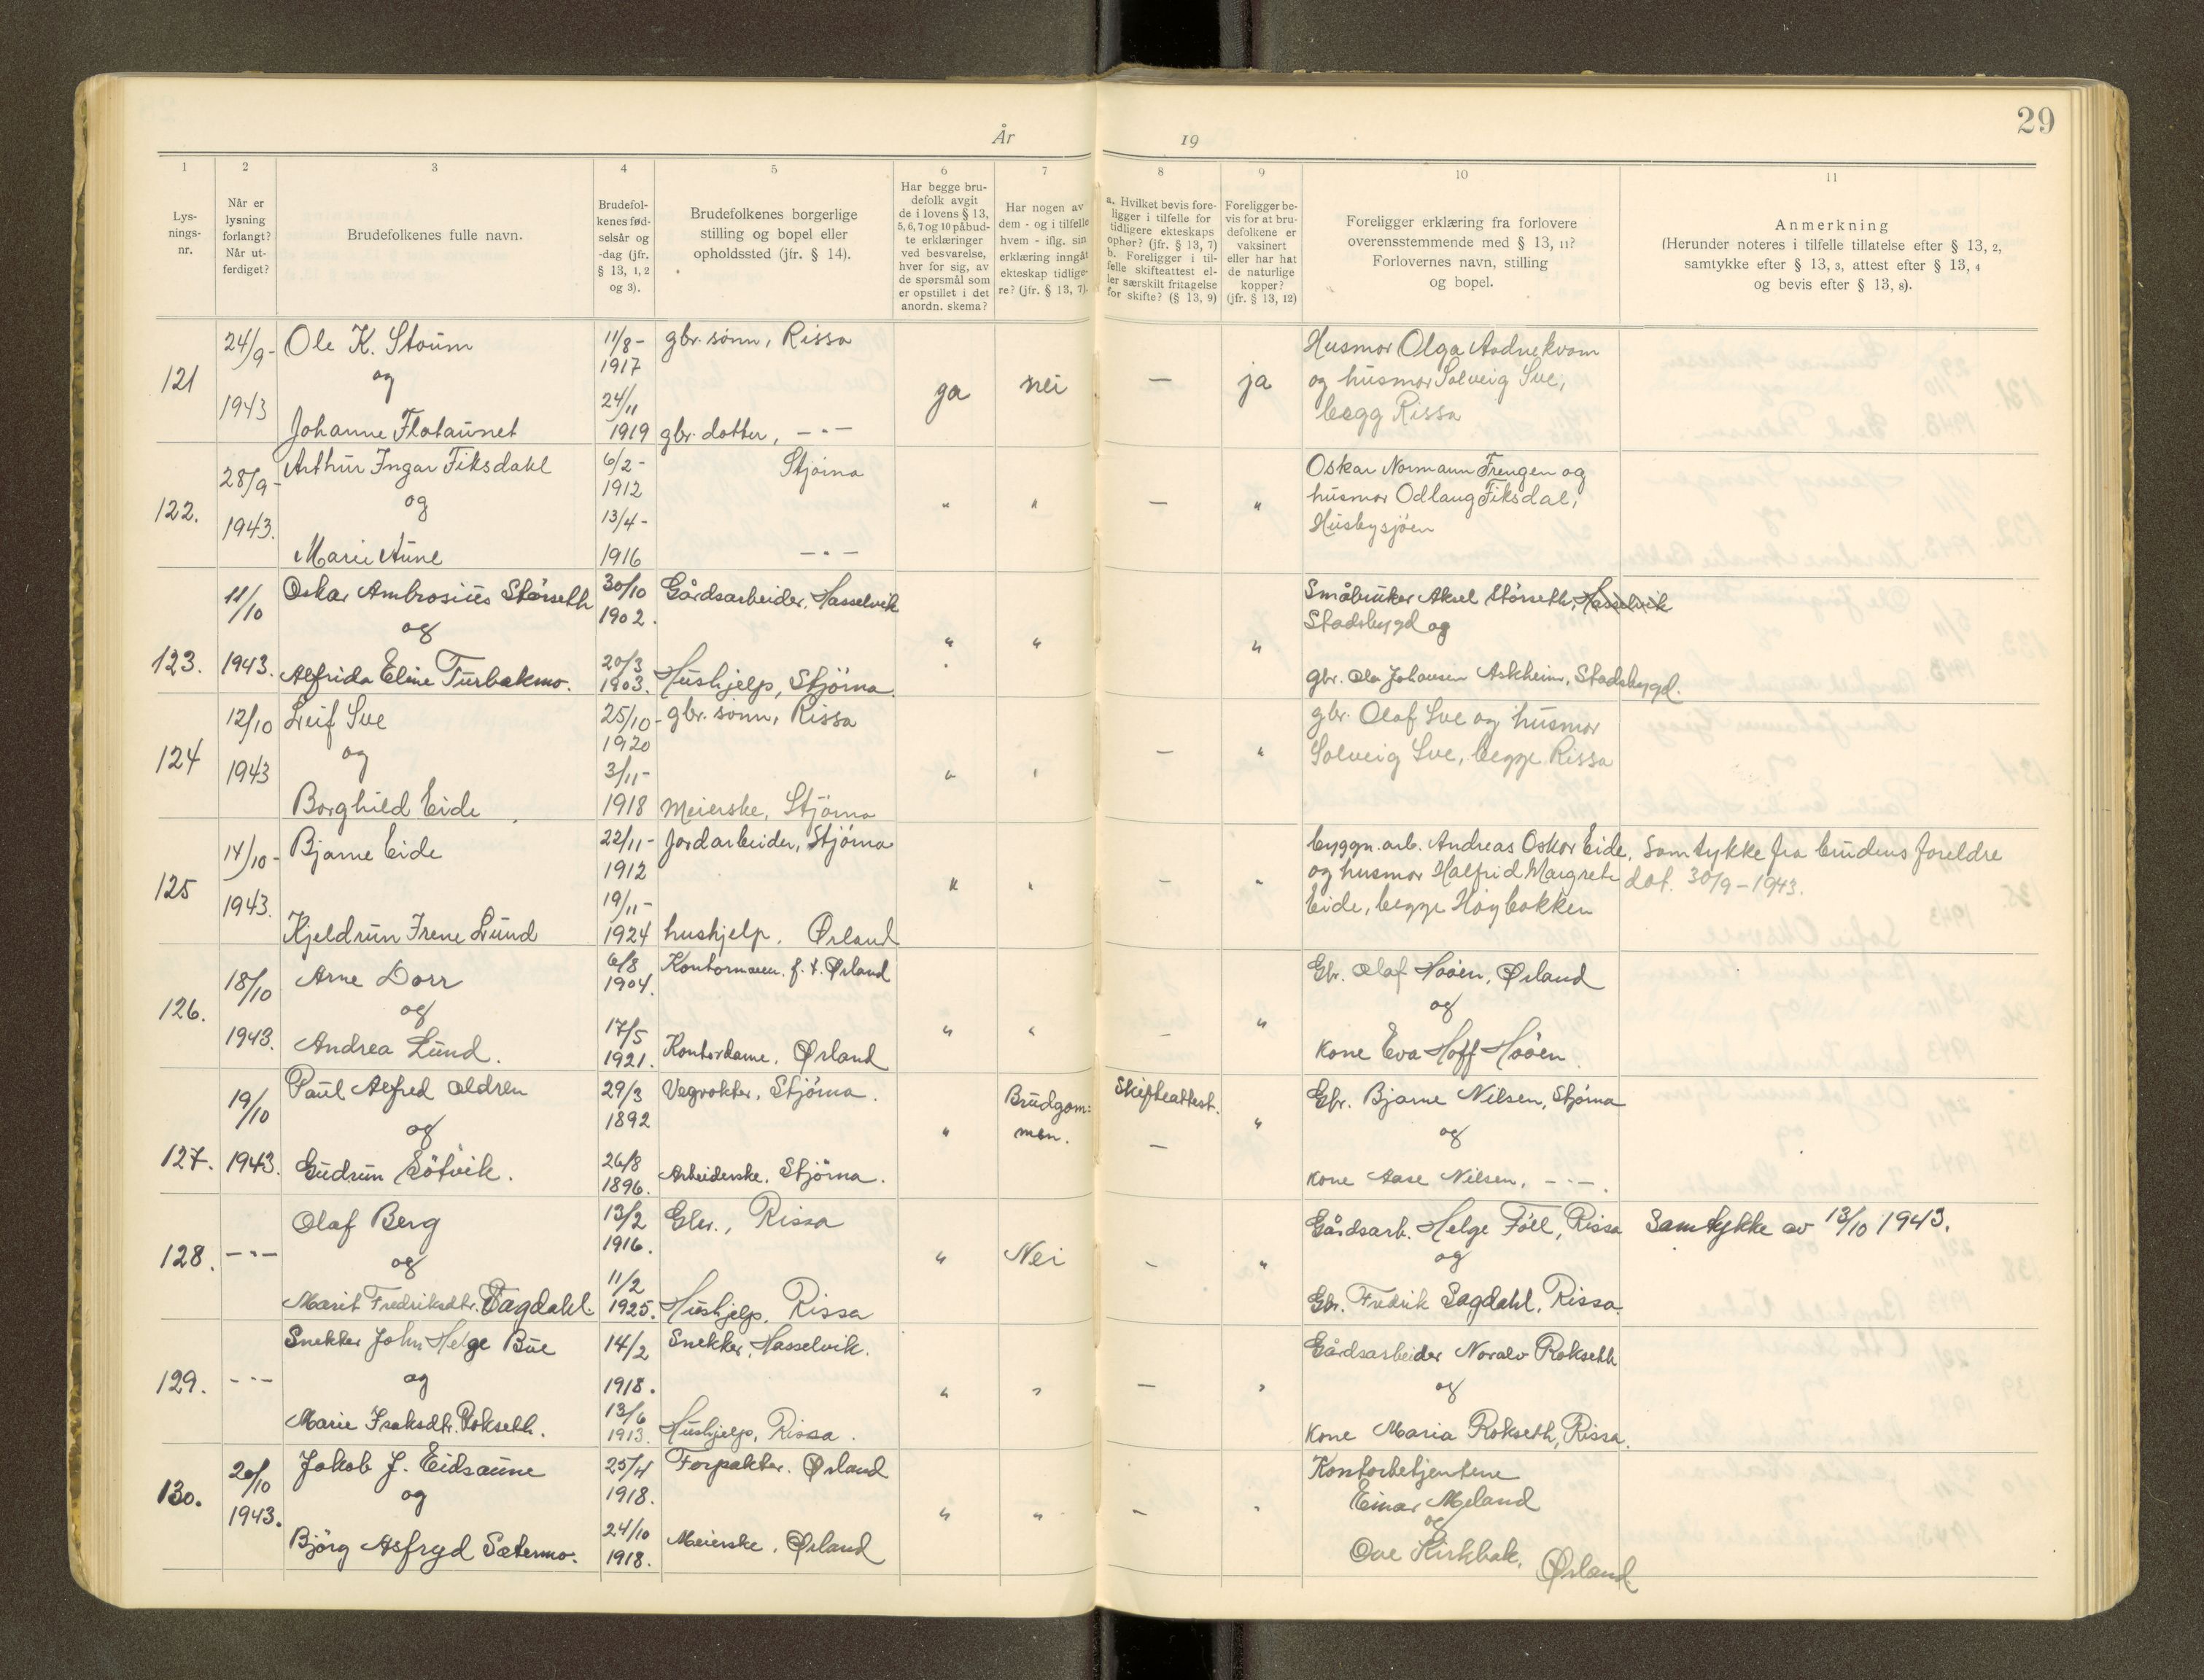 29
År 19
1 2 3 4 5 6 7 8 9 10 11
Lys-
nings-
nr.
Når er
lysning
forlangt?
Når ut-
ferdiget?
Brudefolkenes fulle navn.
Brudefol-
kenes fød-
selsår og
-dag (jfr.
§ 13, 1, 2
og 3).
Brudefolkenes borgerlige
stilling og bopel eller
opholdssted (jfr. § 14).
Har begge bru-
defolk avgit
de i lovens § 13,
5, 6, 7 og 10 påbud-
te erklæringer
ved besvarelse,
hver for sig, av
de spørsmål som
er opstillet i det
anordn. skema?
Har nogen av
dem - og i tilfelle
hvem - iflg. sin
erklæring inngåt
ekteskap tidlige-
re? (jfr. § 13, 7).
a. Hvilket bevis fore-
ligger i tilfelle for
tidligere ekteskaps
ophør? (jfr. § 13, 7)
b. Foreligger i til-
felle skifteattest el-
ler særskilt fritagelse
for skifte? (§ 13, 9)
Foreligger be-
vis for at bru-
defolkene er
vaksinert
eller har hat
de naturlige
kopper?
(jfr. § 13, 12)
Foreligger erklæring fra forlovere
overensstemmende med § 13, 11?
Forlovernes navn, stilling
og bopel.
Anmerkning
(Herunder noteres i tilfelle tillatelse efter § 13, 2,
samtykke efter § 13, 3, attest efter § 13, 4
og bevis efter § 13, 8).
121
24/9-
1943
Ole K. Staum
og
Johanne Flataunet
11/8-
1917
24/11
1919
gbr. sønn, Rissa
gbr. dotter, -"-
ja
nei
—
ja
Husmor Olga Aadnekvam
og husmor Solveig Sve,
begg Rissa
122.
28/9-
1943.
Arthur Ingar Fiksdahl
og
Marie Aune
6/2-
1912
13/4-
1916
Stjørna
-"-
"
"
—
"
Oskar Normann Frengen og
husmor Odlaug Fiksdal,
Husbysjøen
123.
11/10
1943.
Oskar Ambrosius Størseth
og
Alfrida Eline Turbekmo.
30/10
1902.
20/3
1903.
Gårdsarbeider, Hasselvik
Hushjelp, Stjørna.
"
"
"
Småbruker Aksel Størseth, Hasselvik
Stadsbygd og
gbr. Ola Johansen Askheim, Stadsbygd.
124
12/10
1943
Leif Sve
og
Borghild Eide
25/10-
1920
3/11-
1918
gbr. sønn, Rissa
Meierske, Stjørna
"
"
—
"
gbr. Olaf Sve og husmor
Solveig Sve, begge Rissa
125
14/10-
1943.
Bjarne Eide
Kjeldrun Irene Lund
22/11-
1912
19/11-
1924
Jordarbeider, Stjørna
hushjelp. Ørland
"
"
—
"
byggn.arb. Andreas Oskar Eide,
og husmor Halfrid Margrete
Eide, begge Høybakken
Samtykke fra brudens foreldre
dat. 30/9-1943.
126.
18/10
1943.
Arne Dorr
og
Andrea Lund.
6/8
1904.
17/5
1921.
Kontormann. f. t. Ørland
Kontordame. Ørland
"
"
—
"
Gbr. Olaf Hoøen, Ørland
og
kone Eva Hoff Hoøen
127.
19/10
1943.
Paul Alfred Aldren
og
Gudrun Søtvik.
29/3
1892
26/8
1896.
Vegvokter, Stjørna.
Arbeiderske. Stjørna.
"
Brudgom-
men.
Skifteattest.
—
"
Gbr. Bjarne Nilsen, Stjørna
og
kone Aase Nilsen, -"-.
128.
-"-
Olaf Berg
og
Marit Fredriksdtr. Sagdahl.
13/2
1916.
11/2
1925.
Gbr., Rissa
Hushjelp, Rissa
"
Nei
—
"
Gårdsarb. Helge Føll, Rissa
og
Gbr. Fredrik Sagdahl, Rissa.
Samtykke av 13/10 1943.
129.
-"-
Snekker John Helge Bue
og
Marie Isaksdtr. Rokseth.
14/2
1918.
13/6
1913.
Snekker, Hasselvik.
Hushjelp, Rissa.
"
"
—
"
Gårdsarbeider Noralv Rokseth
og
kone Maria Rokseth, Rissa.
130.
20/10
1943.
Jakob J. Eidsaune
og
Bjørg Asfryd Sætermo.
25/4
1918.
24/10
1918.
Forpakter. Ørland
Meierske. Ørland
"
"
—
"
Kontorbetjentene
Einar Meland
og
Ove Kirkbak,
Ørland